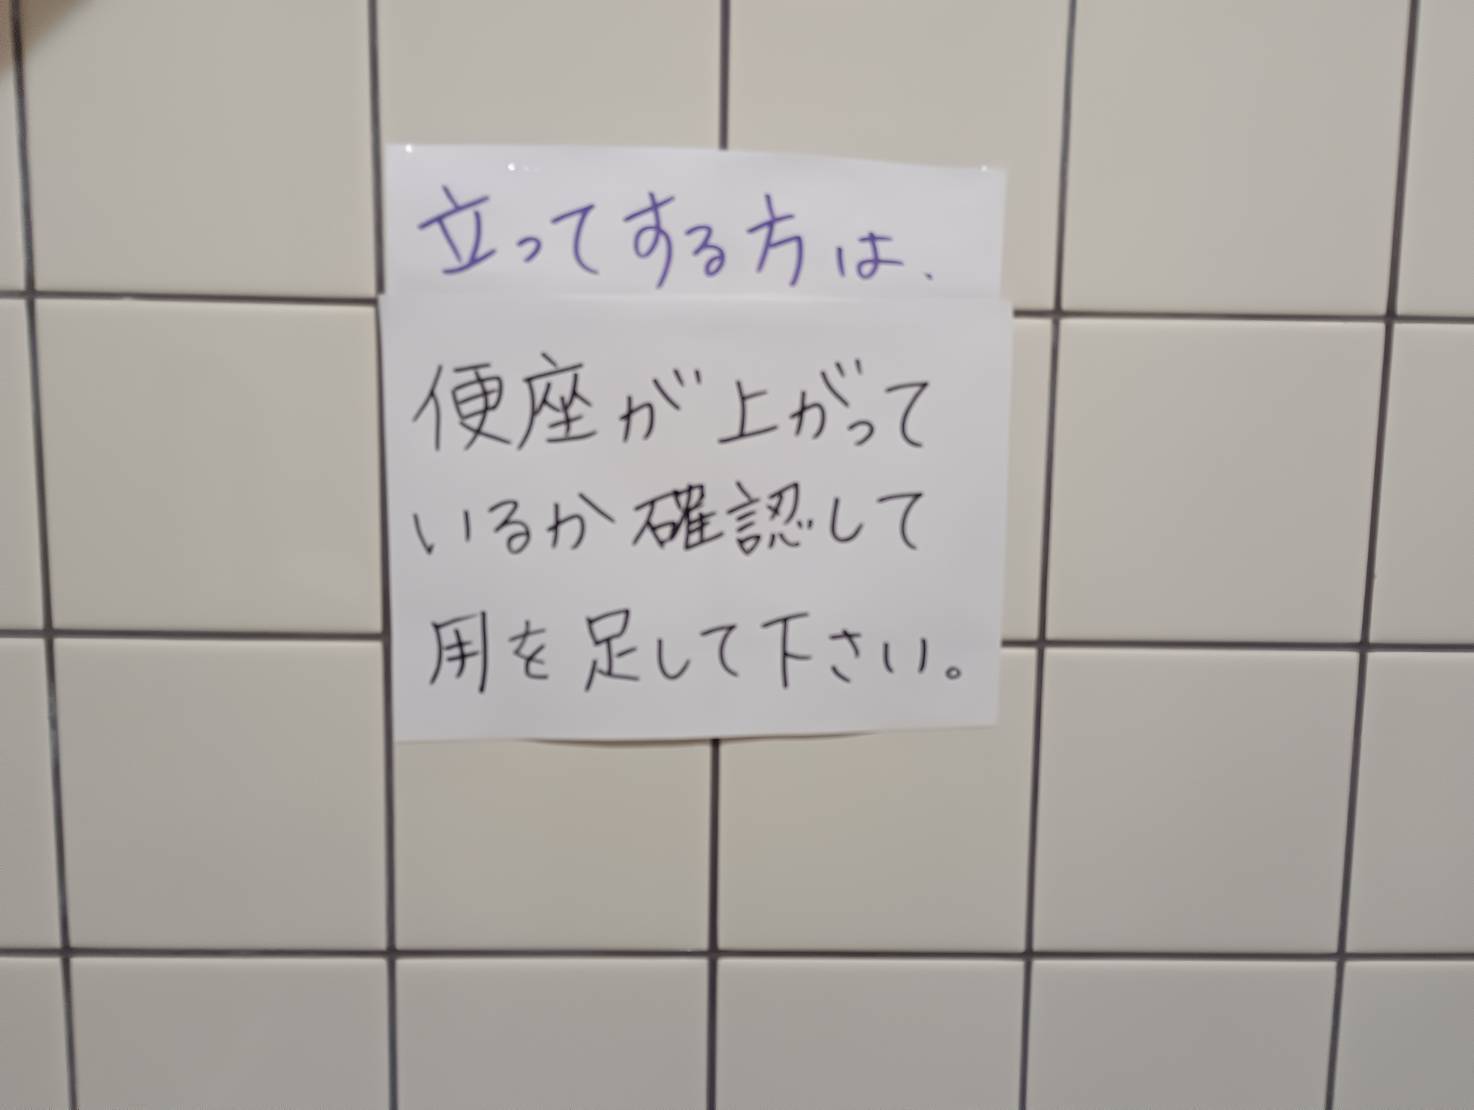 立ってする方は、
便座が上がって
いるか確認して
用を足して下さい。